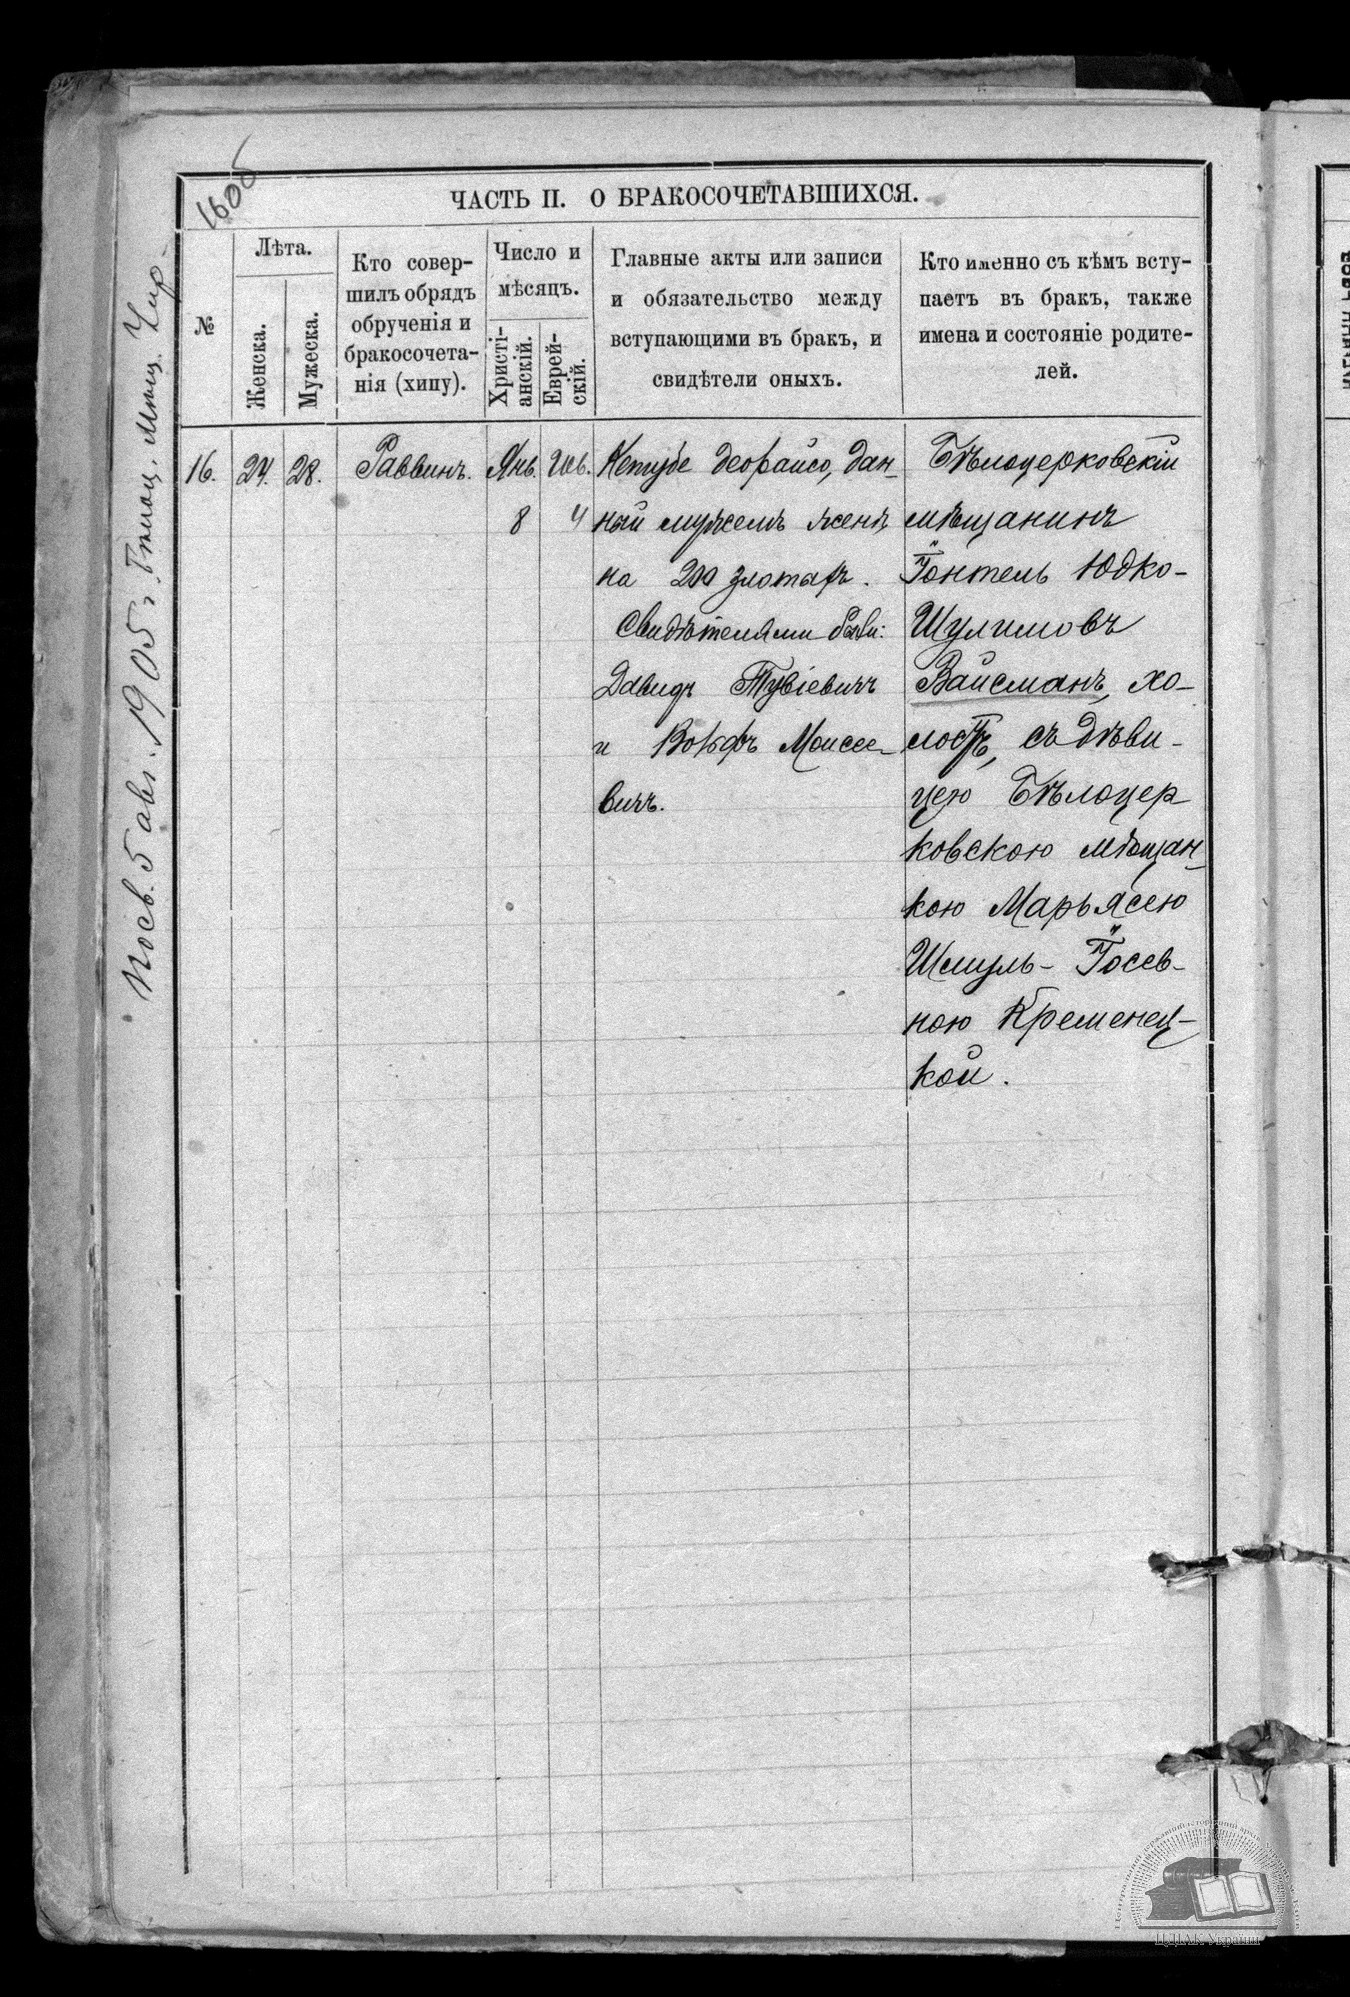 160б
ЧАСТЬ II. О БРАКОСОЧЕТАВШИХСЯ.
№
Лѣта.
Женска.
Мужеска.
Кто совер-
шилъ обрядъ
обрученія и
бракосочета-
нія (хипу).
Число и
мѣсяцъ.
Христі-
анскій.
Еврей-
скій.
Главные акты или записи
и обязательство между
вступающими въ бракъ, и
свидѣтели оныхъ.
Кто именно съ кѣмъ всту-
паетъ въ бракъ, также
имена и состояніе родите-
лей.
16.
24.
28.
Раввинъ.
Янв.
8
Шв.
4
Кетубе деорайсо, дан-
ный мужемъ женѣ
на 200 злотыхъ.
Свидѣтелями были:
Давидъ Тувіевичъ
и Вольфъ Моисее-
вичъ.
Бѣлоцерковскій
мѣщанинъ
Іонтель Юдко-
Шулимовъ
Вайсманъ, хо-
лостъ, съ дѣви-
цею Бѣлоцер
ковскою мѣщан-
кою Марьясею
Шмуль-Іосев-
ною Кременец-
кой.
Посв. 5 авг. 1905 г.
ЦДІАК України